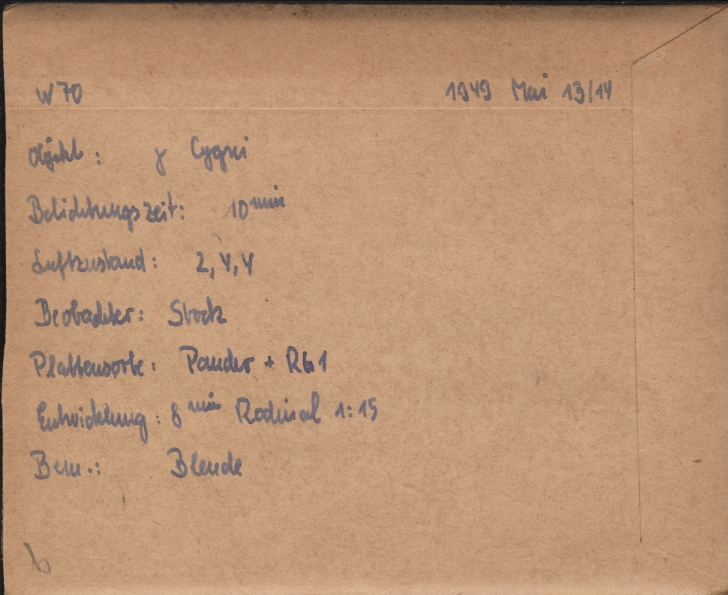 W 70 1949 Mai 13/14
Objekt: γ Cygni
Belichtungszeit: 10 min
Luftzustand: 2, 4, 4
Beobachter: Stock
Plattensorte: Pander + RG1
Entwicklung: 8 min Rodinal 1:15
Bem.: Blende
b